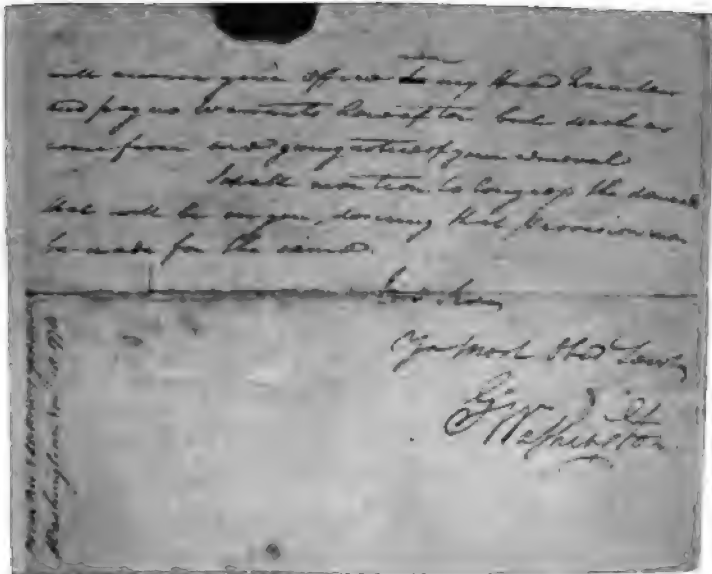 will remove your office to my Head Quarters
and pay no Warrants hereafter but such as
come from me giving notice of your removal
I shall mention to Congress the demands
that will be on you, desiring that Provision may
be made for the same.
I am Sir
Yr Most Obed Servt
G Washington
Washington 1776